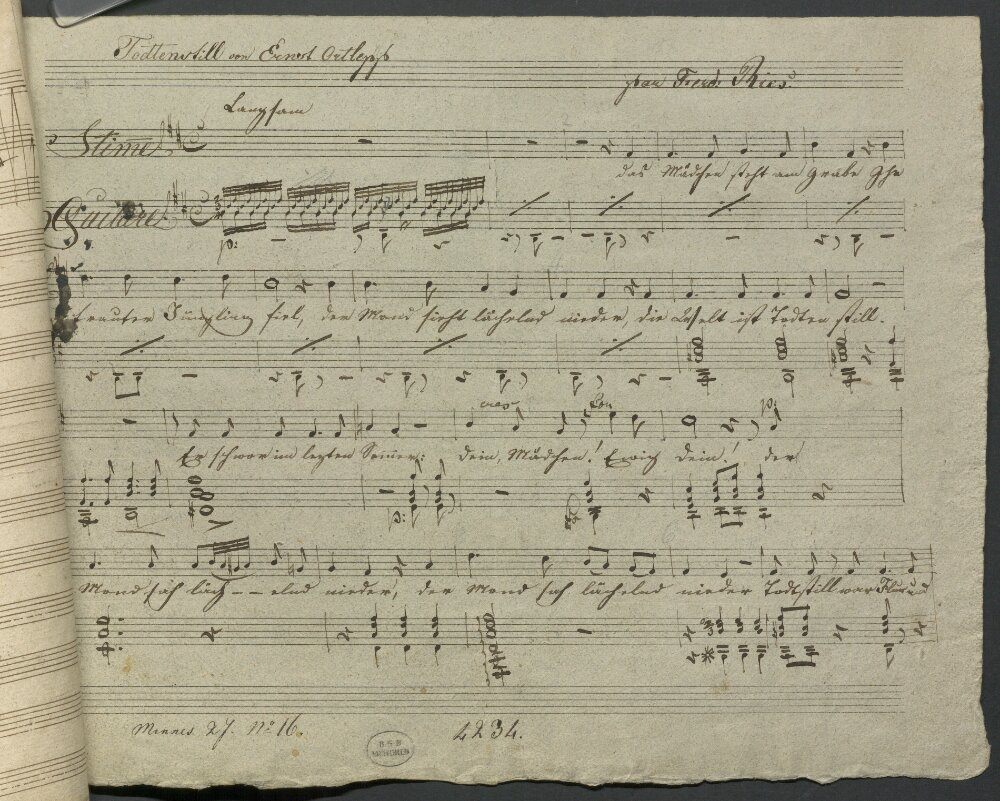 Todtenstill von Ernst Ortlepp
von Ferd. Ries.
Langsam
Stime
das Mädchen steht am Grabe Ihr
Guitare
p:
trauter Jüngling fiel, der Mond sieht lächelnd nieder, die Welt ist Todten still.
cres
p:
Er schwor im lezten Somer: dein, Mädchen! Ewig dein! der
p:
Mond sah läch - - elnd nieder, der Mond sah lächelnd nieder Todtstill war Flur und
Minnes. 27. No 16.
4234.
BSB
MÜNCHEN